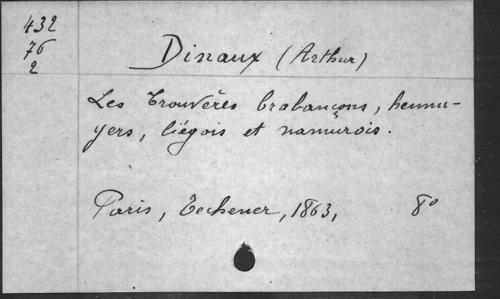 432
76
2
Dinaux (Arthur)
Les Trouvères brabançons, hennu-
yers, liégois et namurois.
Paris, Techener, 1863, 8°